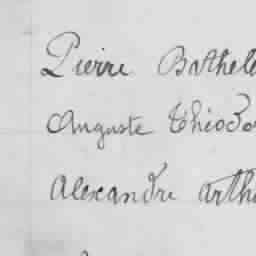 Pierre Bathel
Auguste Théodo
Alexandre Arth